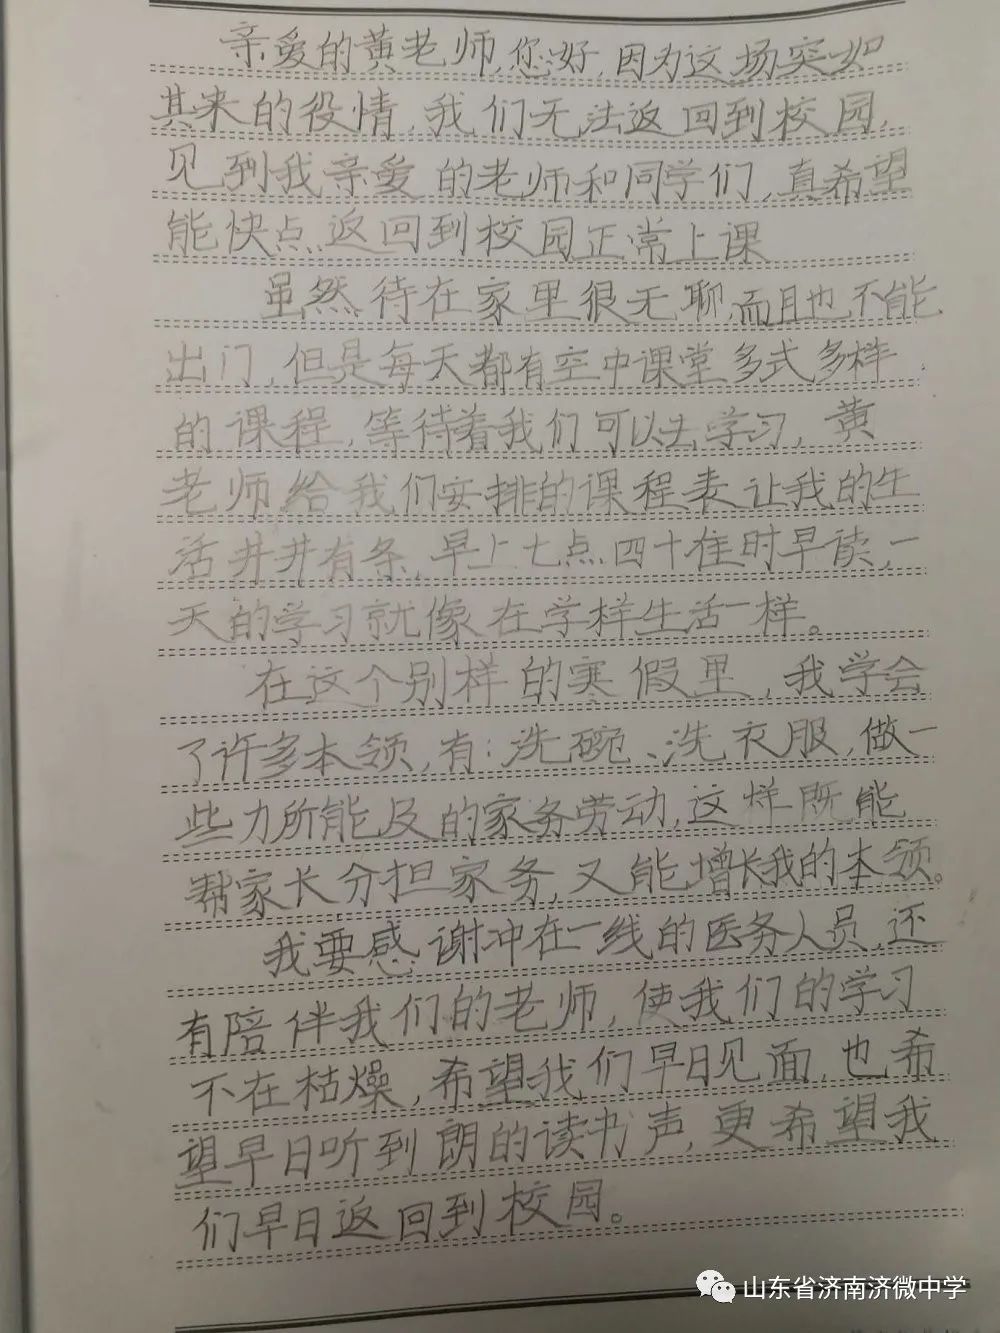 亲爱的黄老师,您好,因为这场突如
其来的役情,我们无法返回到校园,
见到我亲爱的老师和同学们,真希望
能快点返回到校园正常上课
虽然待在家里很无聊,而且也不能
出门,但是每天都有空中课堂多式多样
的课程,等待着我们可以去学习,黄
老师给我们安排的课程表让我的生
活井井有条,早上七点四十准时早读,一
天的学习就像在学样生活一样。
在这个别样的寒假里,我学会
了许多本领,有:洗碗、洗衣服,做一
些力所能及的家务劳动,这样既能
帮家长分担家务,又能增长我的本领。
我要感谢冲在一线的医务人员,还
有陪伴我们的老师,使我们的学习
不在枯燥,希望我们早日见面,也希
望早日听到朗的读书声,更希望我
们早日返回到校园。
山东省济南济微中学